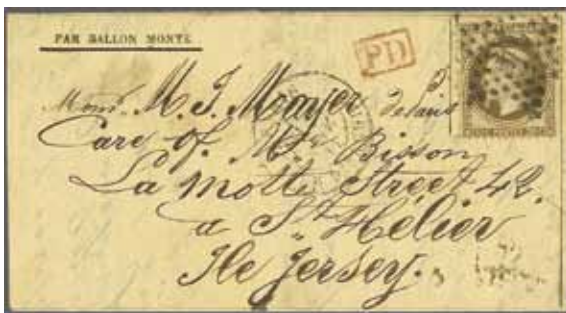 PAR BALLON MONTÉ
PD
M. J. Momjer de Paris
Care of Mr. Bisson
La Motte Street 42.
a St. Hélier
Ile Jersey.